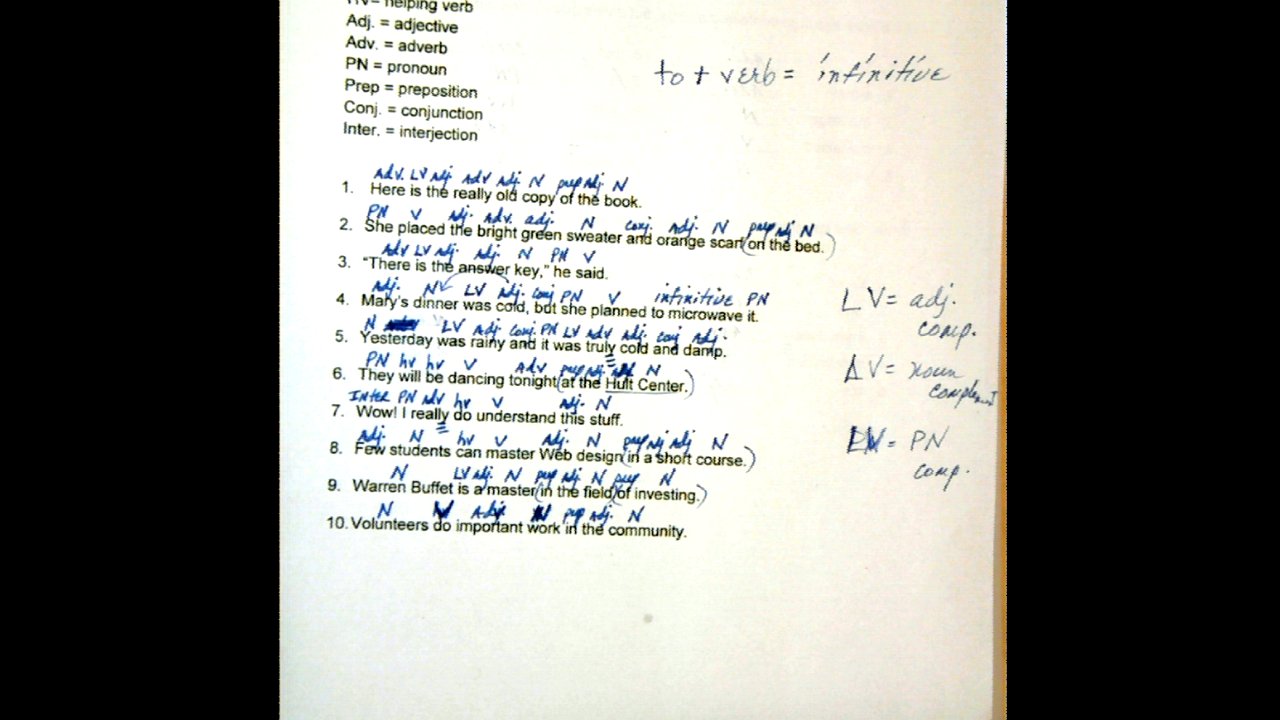 HV= helping verb
Adj. = adjective
Adv. = adverb
PN = pronoun
to + verb = infinitive
Prep = preposition
Conj. = conjunction
Inter. = interjection
Adv. LV adj. Adv Adj. N prep Adj. N
1. Here is the really old copy of the book.
PN V adj. Adv. adj. N conj. Adj. N prep adj N
2. She placed the bright green sweater and orange scarf (on the bed.)
Adv LV adj. Adj. N PN V
3. “There is the answer key,” he said.
Adj. N LV Adj. conj PN V infinitive PN
4. Mary's dinner was cold, but she planned to microwave it.
LV= adj. comp.
N LV Adj conj. PN LV adv adj. conj adj.
5. Yesterday was rainy and it was truly cold and damp.
PN hv hv V Adv prep adj. N
6. They will be dancing tonight (at the Hult Center.)
AV= noun complement
INTER PN adv hv V adj. N
7. Wow! I really do understand this stuff.
Adj. N hv V Adj. N prep adj adj N
8. Few students can master Web design (in a short course.)
= PN comp.
N LV adj. N prep adj N prep N
9. Warren Buffet is a master (in the field (of investing.)
N V Adj. N prep adj. N
10. Volunteers do important work in the community.